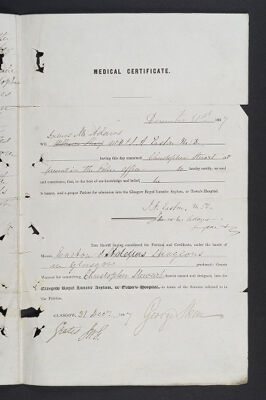 MEDICAL CERTIFICATE.
December 31st 1847
James M. Adams
WE, J. A. Easton M.D.
having this day examined Christopher Stewart at
present in the Police Office do hereby certify, on soul
and conscience, that, to the best of our knowledge and belief he
is insane, and a proper Patient for admission into the Glasgow Royal Lunatic Asylum, or Town's Hospital.
J. A. Easton, M.D.
James M. Adams
THE Sheriff having considered the Petition and Certificate, under the hands of
Messrs. Easton & Adams Surgeons
in Glasgow
Grants
Warrant for Christopher Stewart therein named and designed, into the
Glasgow Royal Lunatic Asylum, or Town's Hospital, in terms of the Statutes referred to in
the Petition.
GLASGOW, 31 Decr. 1847 George Skene
Gratis